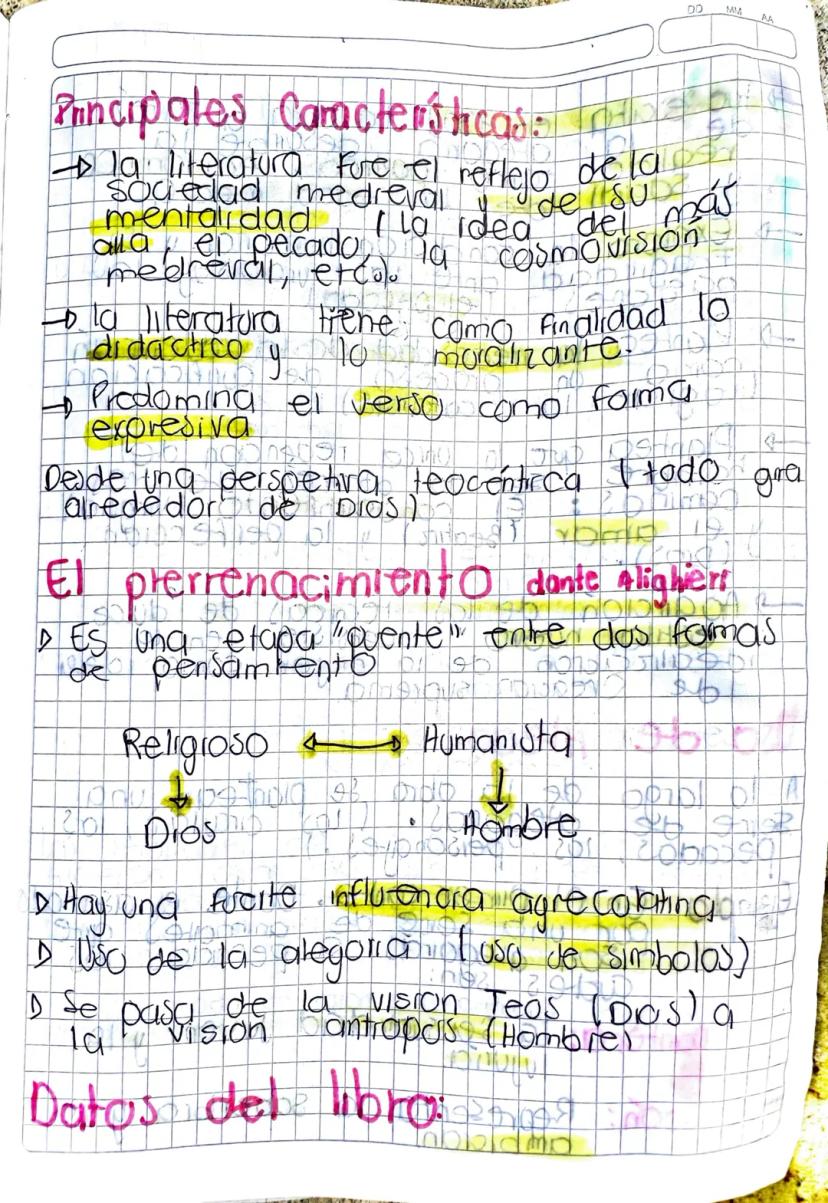 DD MM AA
Principales Características:
→ la literatura fue el reflejo de la
sociedad medieval y de su
mentalidad (la idea del más
alla, el pecado, la cosmovisión
medieval, etc).
→ la literatura tiene como finalidad lo
didáctico y lo moralizante.
→ Predomina el verso como forma
expresiva
Desde una perspetiva teocéntrica (todo gira
alrededor de Dios)
El prerrenacimiento dante Alighieri
▷ Es una etapa "puente" entre dos formas
de pensamiento
Religioso ↔ Humanista
↓ ↓
Dios Hombre
▷ Hay una fuerte influencia agrecolatina
▷ Uso de la alegoria (uso de simbolos)
▷ Se pasa de la vision Teos (Dios) a
la visión antropos (Hombre)
Datos del libro: